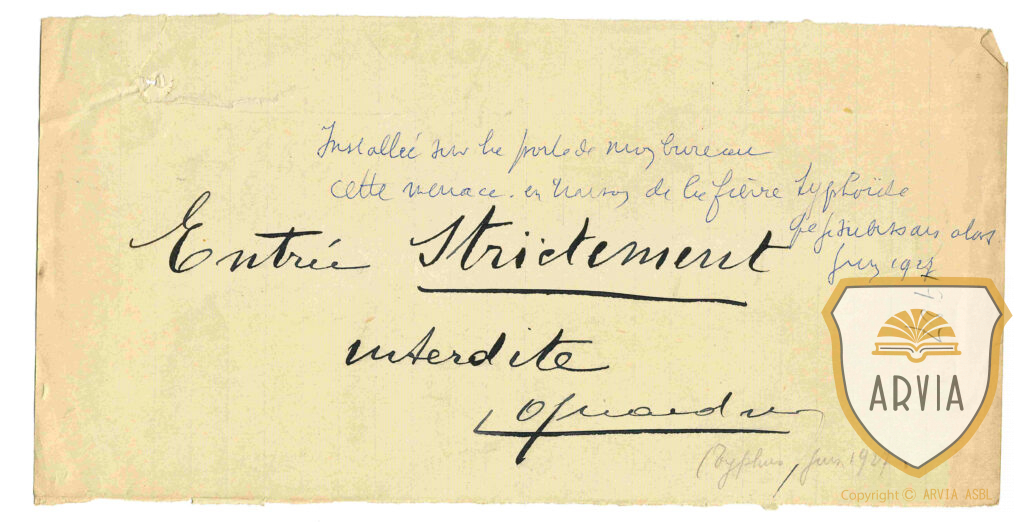 Installée sur la porte de mon bureau
cette menace. en raison de la fièvre typhoïde
que je subissais alors.
Juin 1927
Entrée Strictement
interdite
(Typhus, Juin 1927
ARVIA
Copyright © ARVIA ASBL